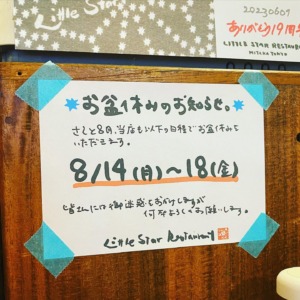 Little Star
20230609
ありがとう19周年
LITTLE STAR RESTAURANT
MITAKA TOKYO
お盆休みのお知らせ。
さて8月、当店も以下の日程でお盆休みを
いただきます。
8/14(月)～18(金)
皆さんには御迷惑をおかけしますが
何卒よろしくお願いします。
Little Star Restaurant